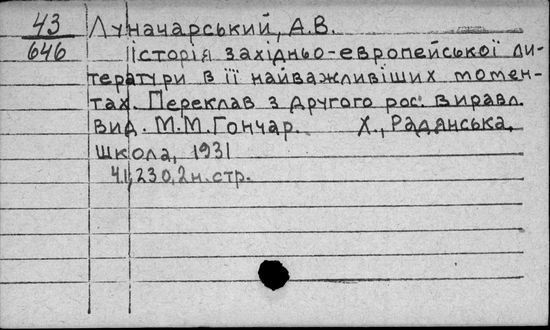 43 Луначарський, А.В.
646 Історія західньо-европейської ли-
тератури в її найважливіших момен-
тах. Переклав з другого рос. виравл.
вид. М.М.Гончар. Х., Радянська,
школа, 1931
Ч.1, 230, 2 н. стр.